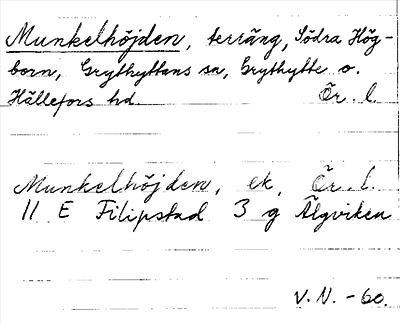 Munkelhöjden, terräng, Södra Hög-
born, Grythyttans sn, Grythytte o.
Hällefors hd. Ör. l.
Munkelhöjden, ek, Ör. l.
11 E Filipstad 3 g Älgviken
V. N. -60.